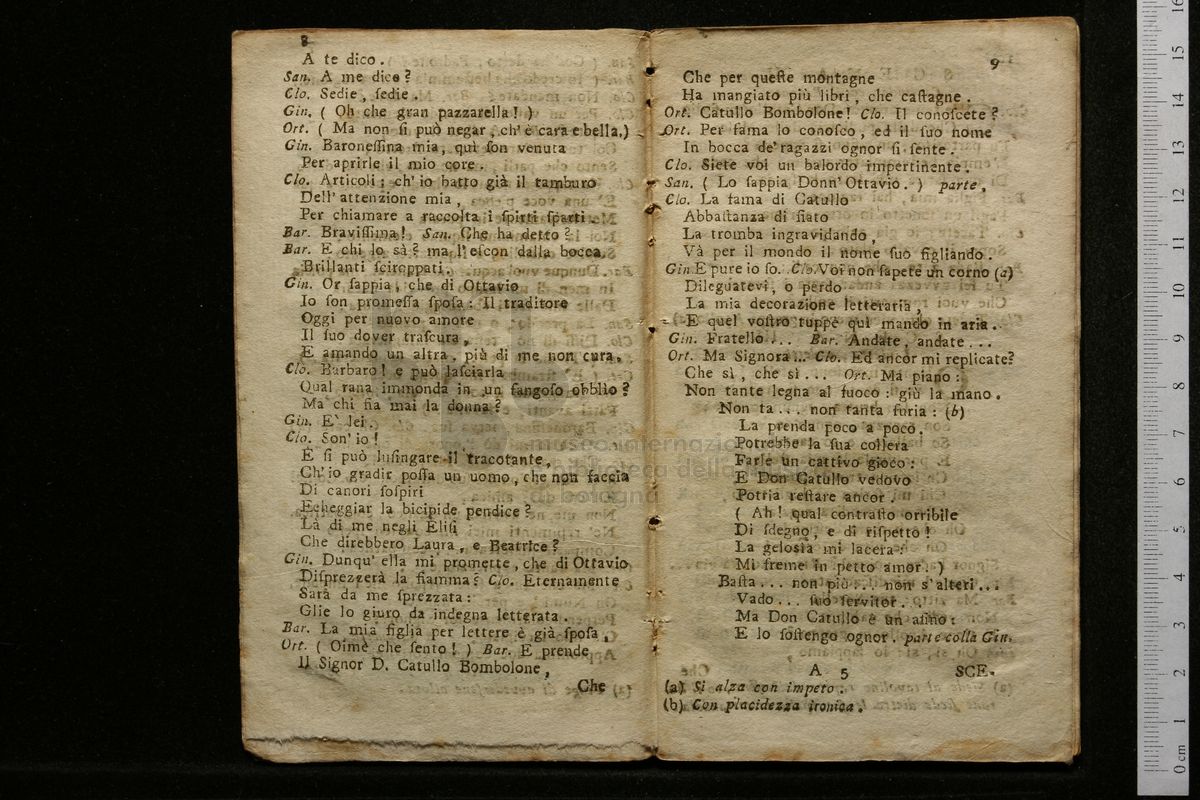 8
A te dico.
San. A me dice?
Clo. Sedie, ſedie.
Gin. ( Oh che gran pazzarella! )
Ort. ( Ma non ſi può negar, ch'è cara e bella.)
Gin. Baroneſſina mia, quì ſon venuta
Per aprirle il mio core.
Clo. Articoli; ch'io batto già il tamburo
Dell'attenzione mia,
Per chiamare a raccolta i ſpirti ſparti.
Bar. Braviſſima! San. Che ha detto?
Bar. E chi lo sà? ma l'eſcon dalla bocca
Brillanti ſciroppati.
Gin. Or ſappia, che di Ottavio
Io ſon promeſſa ſpoſa: Il traditore
Oggi per nuovo amore
Il ſuo dover traſcura,
E amando un altra, più di me non cura.
Clo. Barbaro! e può laſciarla
Qual rana immonda in un fangoſo obblio?
Ma chi ſia mai la donna?
Gin. E' lei.
Clo. Son'io!
E ſi può luſingare il tracotante,
Ch'io gradir poſſa un uomo, che non faccia
Di canori ſoſpiri
Echeggiar la bicipide pendice?
Là di me negli Eliſi
Che direbbero Laura, e Beatrice?
Gin. Dunqu' ella mi promette, che di Ottavio
Diſprezzerà la fiamma? Clo. Eternamente
Sarà da me ſprezzata:
Glie lo giuro da indegna letterata.
Bar. La mia figlia per lettere è già ſpoſa,
Ort. ( Oimè che ſento! ) Bar. E prende
Il Signor D. Catullo Bombolone,
Che
9
Che per queſte montagne
Ha mangiato più libri, che caſtagne.
Ort. Catullo Bombolone! Clo. Il conoſcete?
Ort. Per fama lo conoſco, ed il ſuo nome
In bocca de'ragazzi ognor ſi ſente.
Clo. Siete voi un balordo impertinente.
San. ( Lo ſappia Donn'Ottavio. ) parte,
Clo. La fama di Catullo
Abbaſtanza di fiato
La tromba ingravidando,
Và per il mondo il nome ſuo figliando.
Gin. E pure io ſo. Clo. Voi non ſapete un corno (a)
Dileguatevi, o perdo
La mia decorazione letteraria,
E quel voſtro tuppè quì mando in aria.
Gin. Fratello... Bar. Andate, andate...
Ort. Ma Signora... Clo. Ed ancor mi replicate?
Che sì, che sì... Ort. Ma piano:
Non tante legna al fuoco: giù la mano.
Non ta... non tanta furia: (b)
La prenda poco a poco.
Potrebbe la ſua collera
Farle un cattivo gioco:
E Don Catullo vedovo
Potria reſtare ancor.
( Ah! qual contraſto orribile
Di ſdegno, e di riſpetto!
La geloſia mi lacera:
Mi freme in petto amor. )
Baſta... non più... non s'alteri...
Vado... ſuo ſervitor.
Ma Don Catullo è un aſino:
E lo ſoſtengo ognor. parte colla Gin.
A 5 SCE.
(a) Si alza con impeto.
(b) Con placidezza ironica.